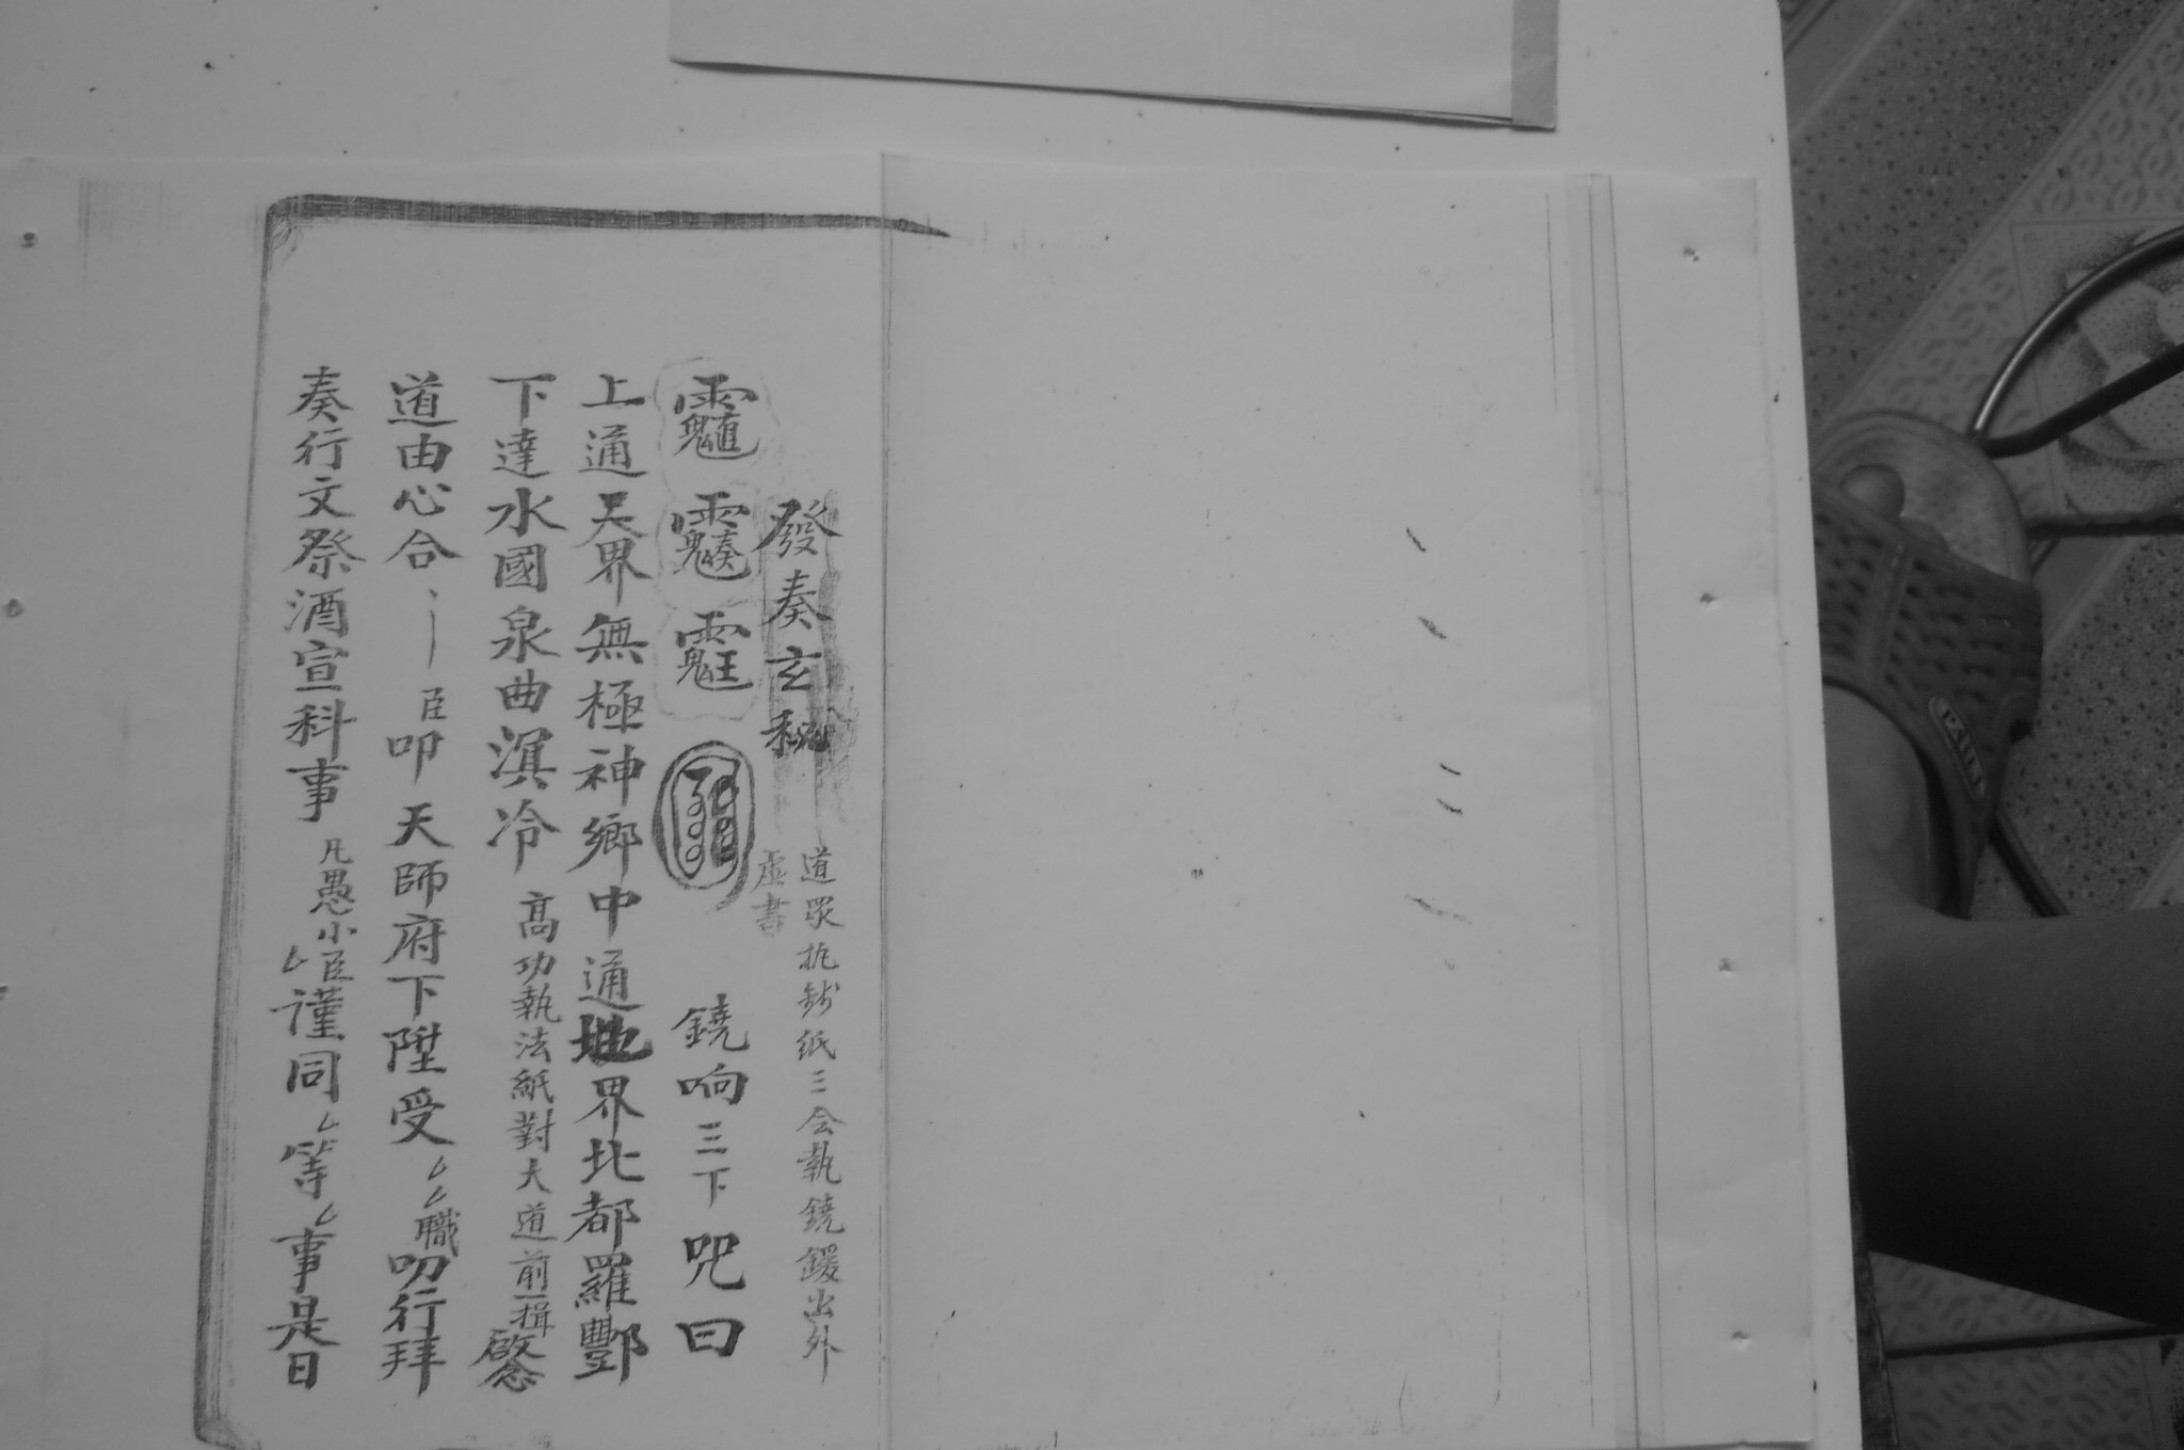 發奏玄秘 道眾抗鈔紙三会執鐃鍰出外
虛書
鐃响三下咒曰
上通昊界無極神鄉中通地界北都羅酆
下達水國泉曲溟冷 高功執法紙對大道前一揖 啟念
道由心合 臣叩天師府下陞受 職叨行拜
奏行文祭酒宣科事 凡愚小臣謹同 等 事是日